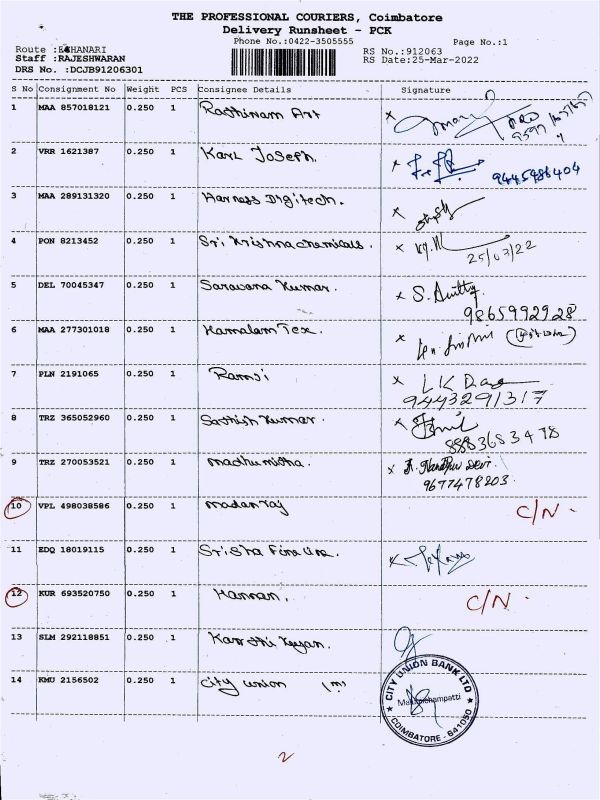 THE PROFESSIONAL COURIERS, Coimbatore
Delivery Runsheet - PCK
Phone No.:0422-3505555 Page No.:1
Route :ECHANARI RS No.:912063
Staff :RAJESHWARAN RS Date:25-Mar-2022
DRS No. :DCJB91206301
S No Consignment No Weight PCS Consignee Details Signature
1 MAA 857018121 0.250 1 Rathinam Art
2 VRR 1621387 0.250 1 Karl Joseph. 9445486404
3 MAA 289131320 0.250 1 Harness Digitech.
4 PON 8213452 0.250 1 Sri Krishna chemicals. 25/03/22
5 DEL 70045347 0.250 1 Saravana Kumar. S.
9865992928
6 MAA 277301018 0.250 1 Kamalam Tex.
7 PLN 2191065 0.250 1 Ramsi LK
9443291317
8 TRZ 365052960 0.250 1 Sathish Kumar.
8883683478
9 TRZ 270053521 0.250 1 Madhumitha. Nandhu Devi.
9677478203
10 VPL 498038586 0.250 1 Madanraj C/N
11 EDQ 18019115 0.250 1
12 KUR 693520750 0.250 1 Hannan. C/N
13 SLM 292118851 0.250 1
14 KMU 2156502 0.250 1 City union (m)
CITY UNION BANK LTD
COIMBATORE - 641050
2